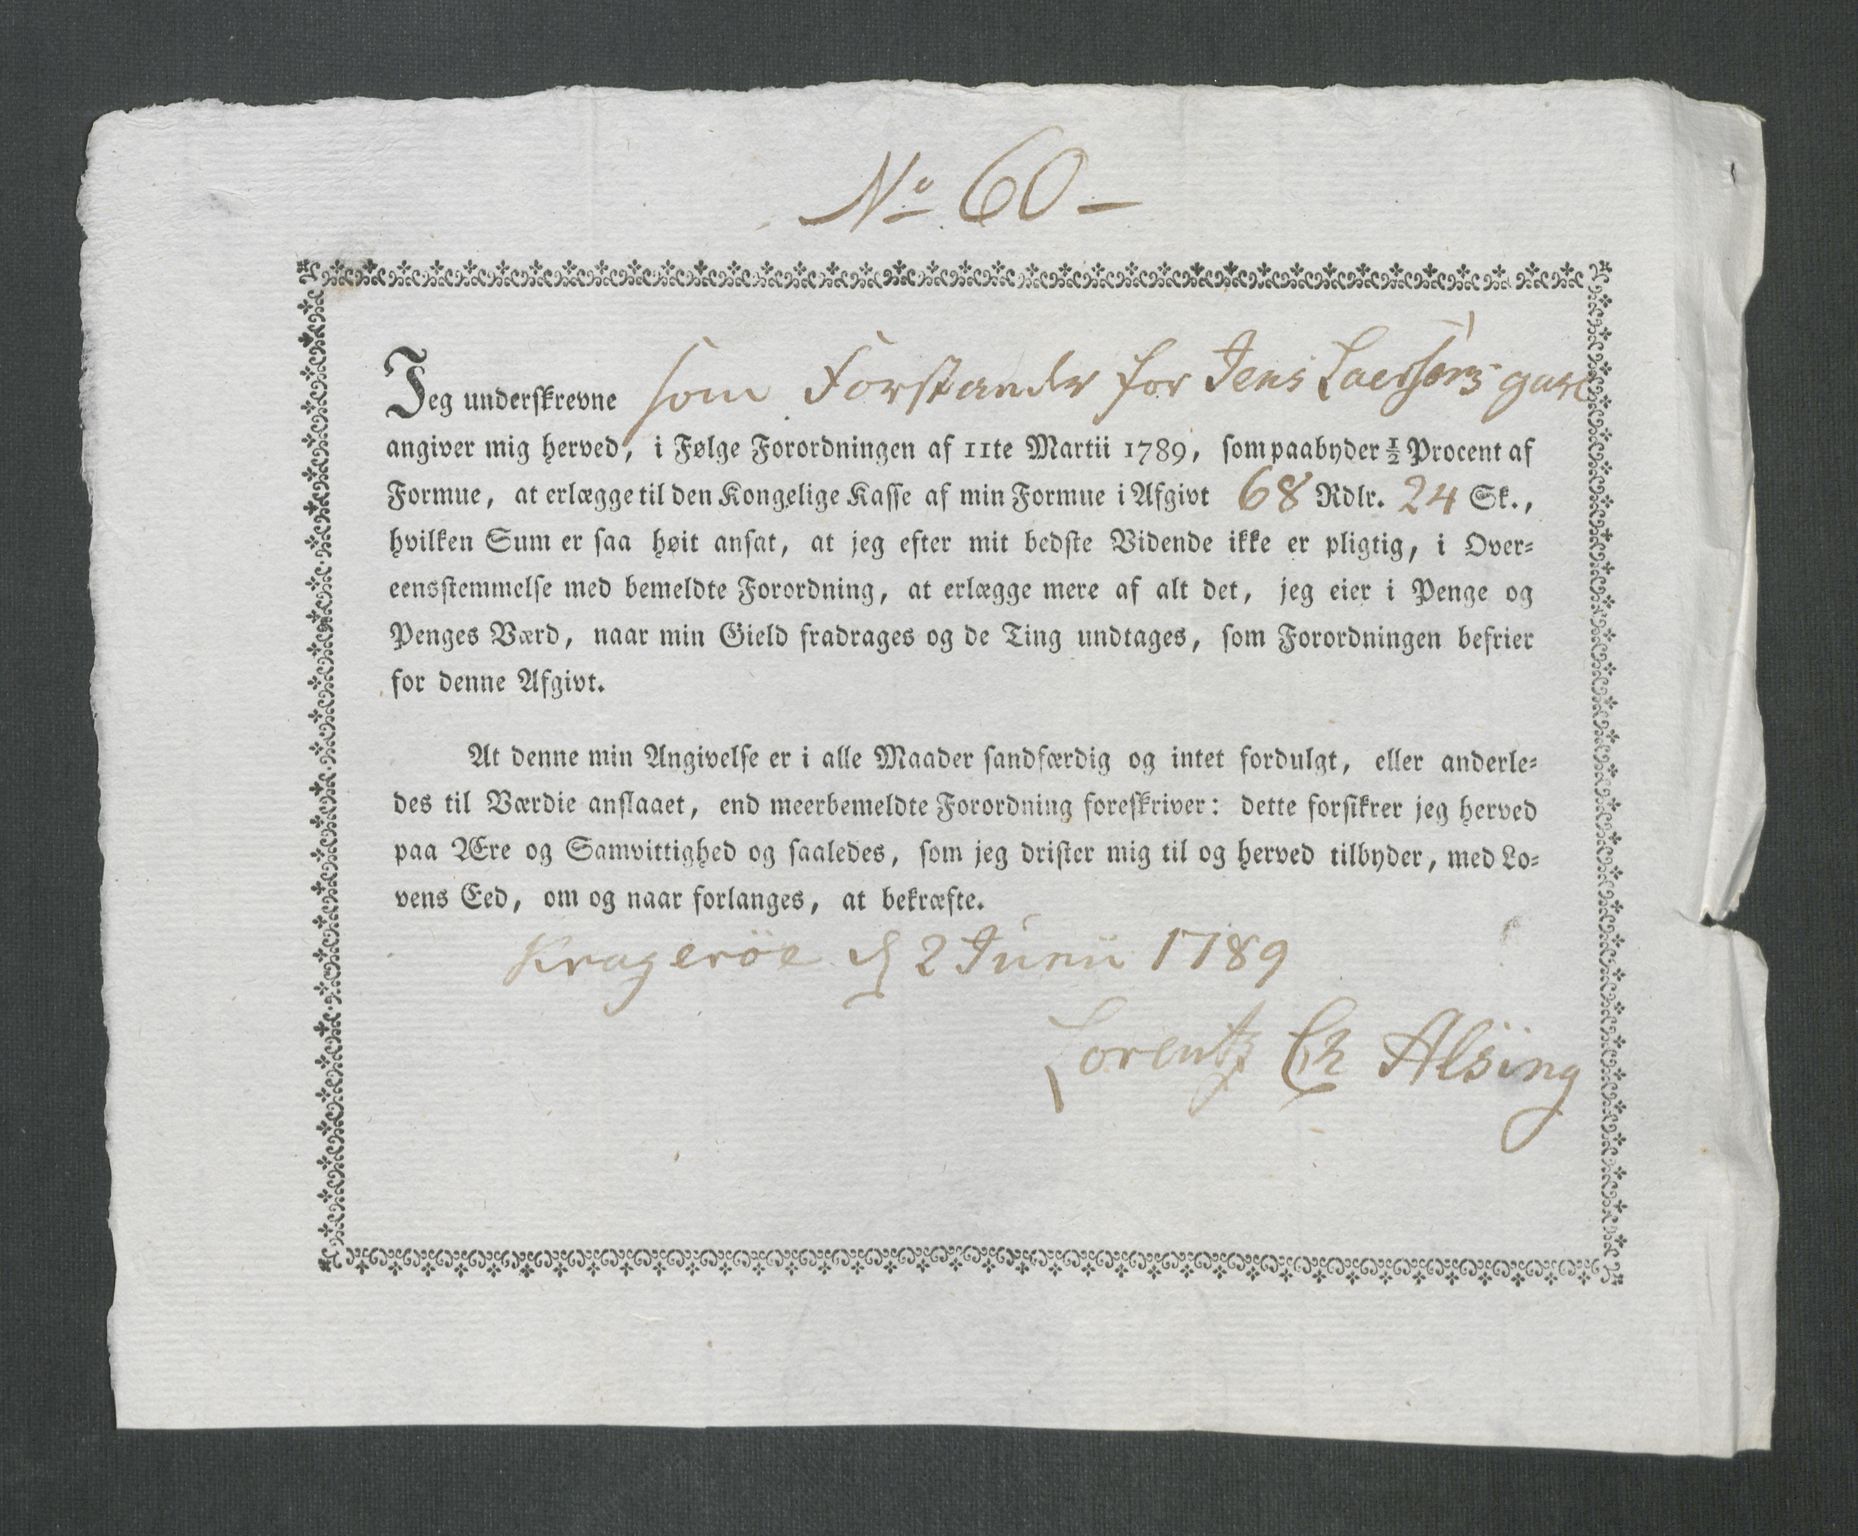 No 60 -
Jeg underskrevne som Forstander for Jens Laersens
angiver mig herved, i Følge Forordningen af 11te Martii 1789, som paabyder ½ Procent af
Formue, at erlægge til den Kongelige Kasse af min Formue i Afgivt 68 Rdlr. 24 Sk.,
hvilken Sum er saa høit ansat, at jeg efter mit bedste Vidende ikke er pligtig, i Over-
eensstemmelse med bemeldte Forordning, at erlægge mere af alt det, jeg eier i Penge og
Penges Værd, naar min Gield fradrages og de Ting undtages, som Forordningen befrier
for denne Afgivt.
At denne min Angivelse er i alle Maader sandfærdig og intet fordulgt, eller anderle-
des til Værdie anslaaet, end meerbemeldte Forordning foreskriver: dette forsikrer jeg herved
paa Ære og Samvittighed og saaledes, som jeg drister mig til og herved tilbyder, med Lo-
vens Eed, om og naar forlanges, at bekræfte.
Krageröe d 2 Junii 1789
Lorentz Ch Alsing